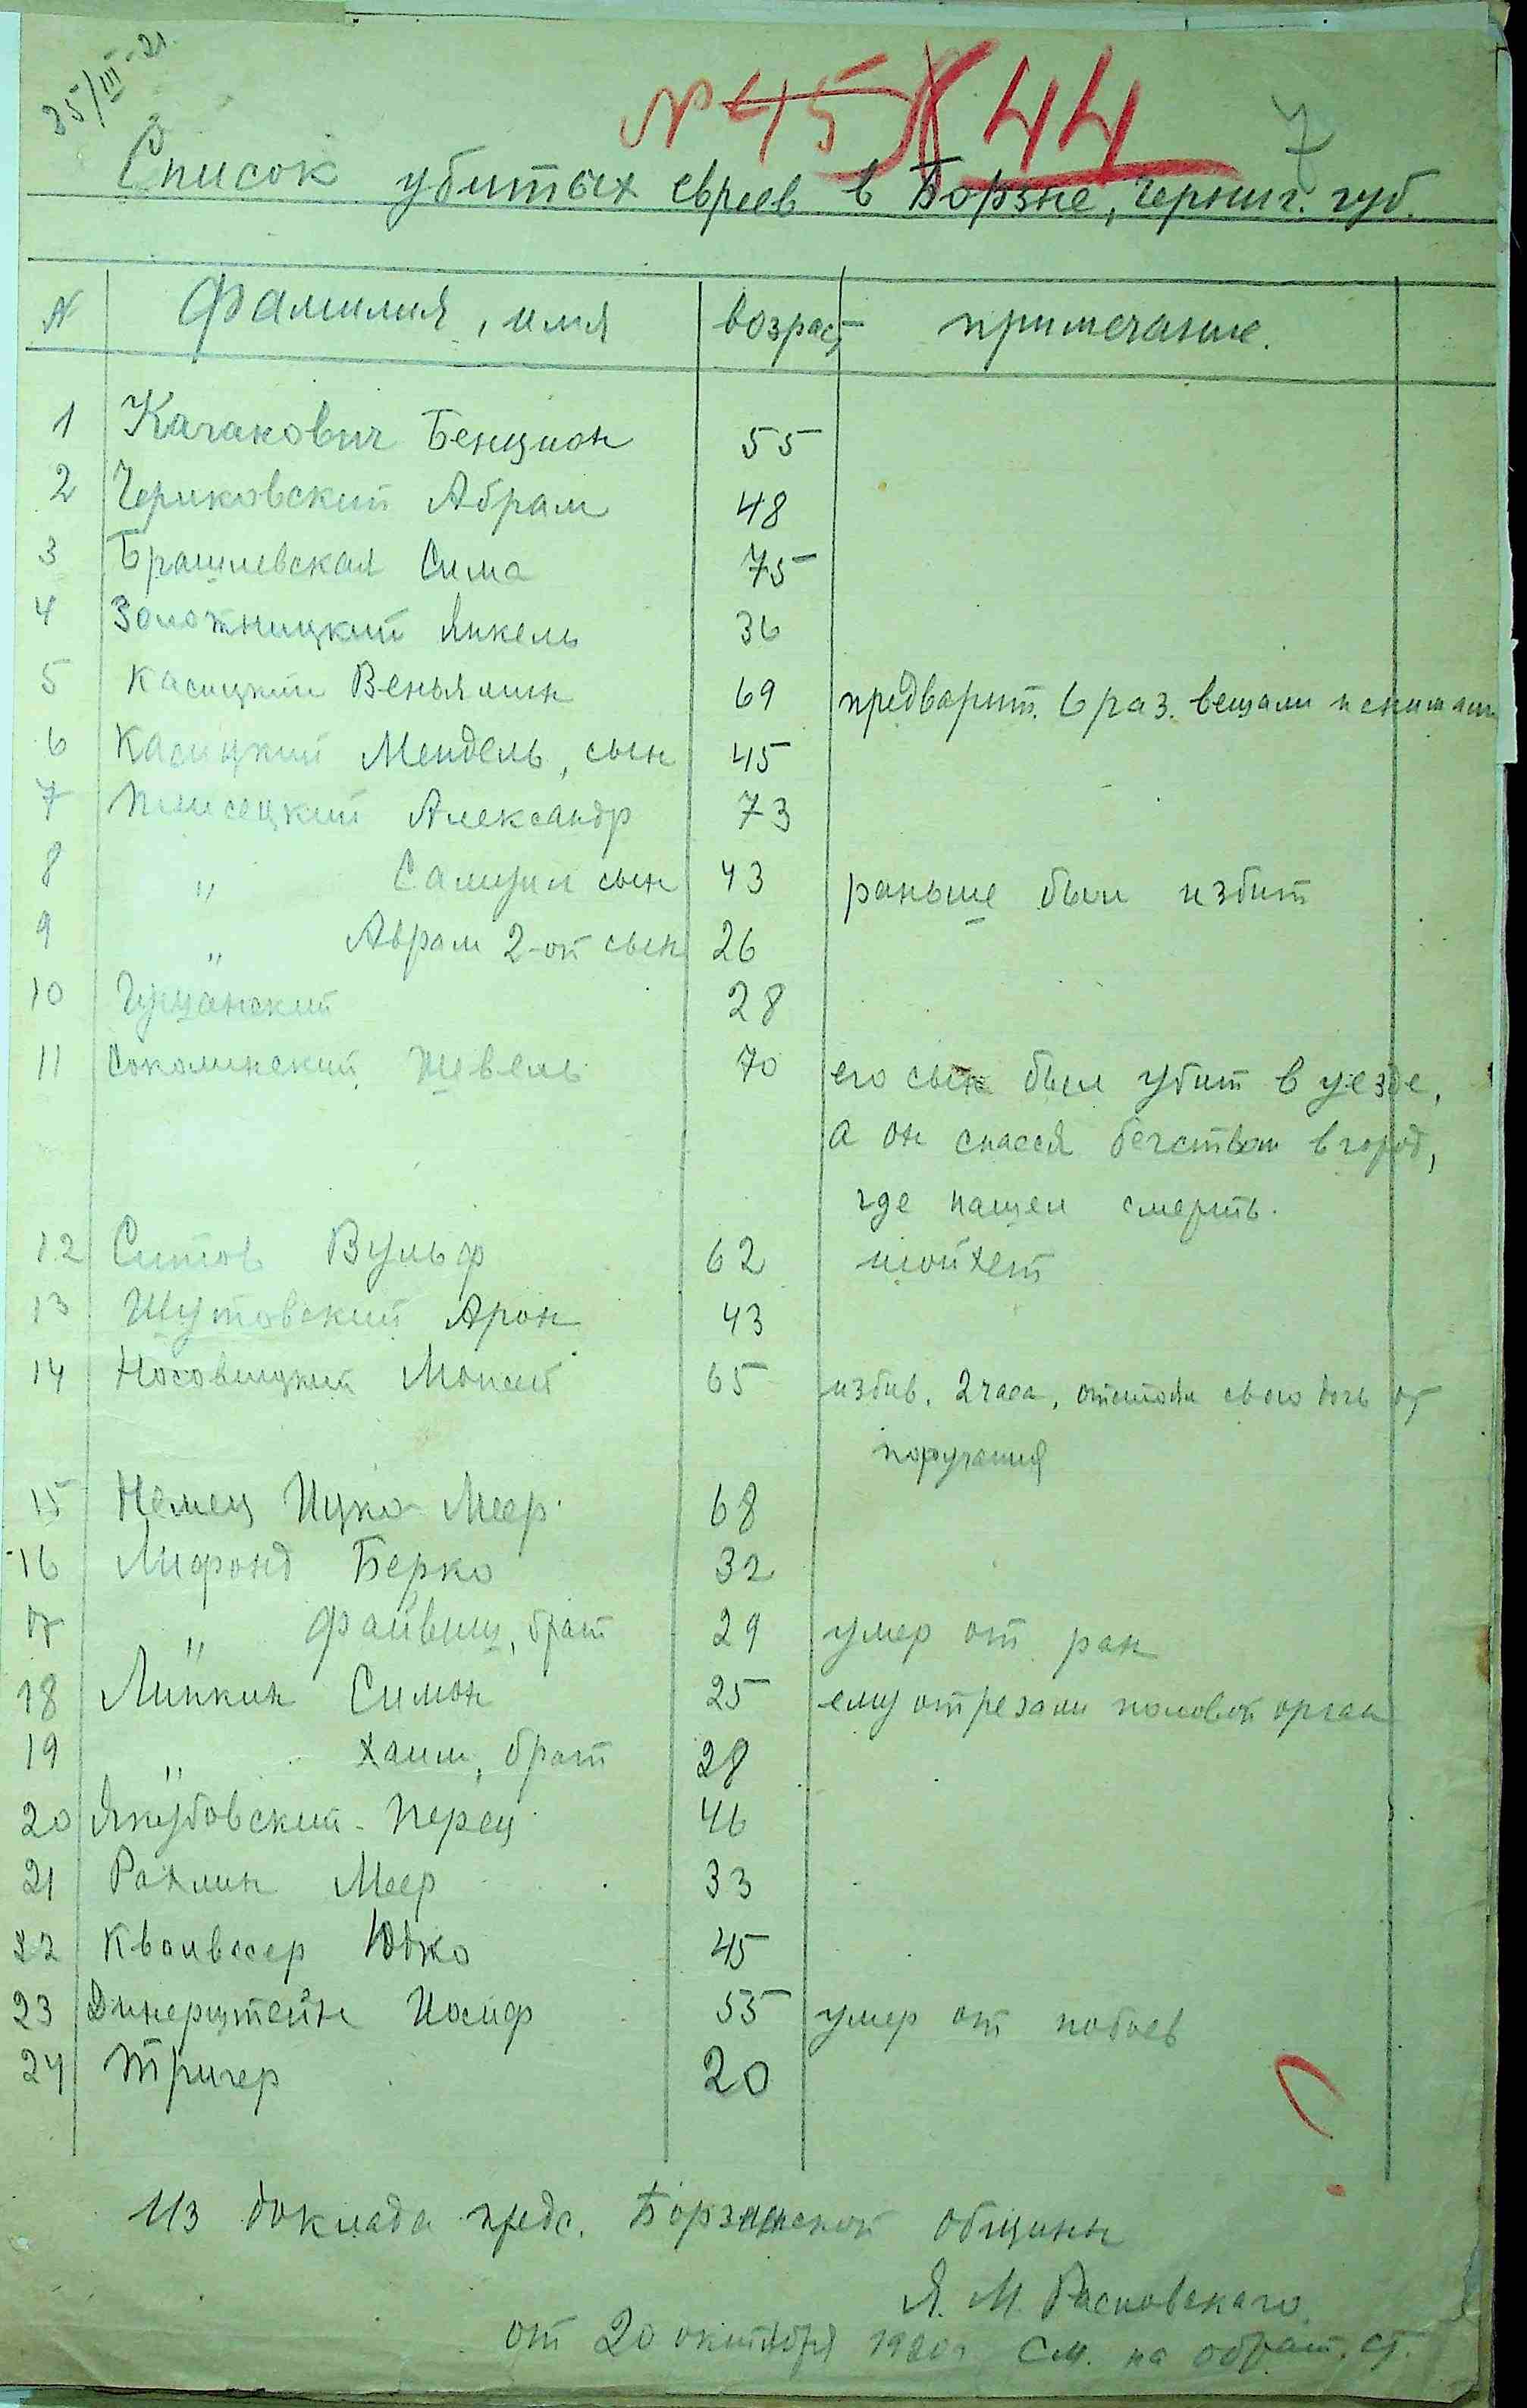 35/III-21.
№ 45 44 7
Список убитых евреев в Борзне, Черниг. губ.
N Фамилия, имя возраст примечание.
1 Качакович Бенцион 55
2 Чериковский Абрам 48
3 Брашневская Сима 75
4 Золотницкий Янкель 36
5 Касицкий Веньямин 69 предварит. 6 раз. вешали и снимали
6 Касицкий Мендель, сын 45
7 Плисецкий Александр 73
8 " Самуил сын 43 раньше был избит
9 " Аврам 2-ой сын 26
10 Гущанский 28
11 Соколинский Шевель 70 его сын был убит в уезде,
а он спасся бегством в город,
где нашел смерть.
12 Ситов Вульф 62 шойхет
13 Шутовский Арон 43
14 Носовицкий Моисей 65 избив. 2 часа, отстоял свою дочь от
поругания
15 Немец Ицко-Меер 68
16 Лифонд Берко 32
17 " Файвиш, брат 29 умер от ран
18 Липкин Симон 25 ему отрезали половой орган
19 " Хаим, брат 28
20 Якубовский Перец 46
21 Рахлин Меер 33
22 Квайвасер Юдко 45
23 Динерштейн Иосиф 55 умер от побоев
24 Тригер 20
Из доклада предс. Борзенской общины
Я. М. Расновскаго
от 20 октября 1920 г. См. на обрат. ст.